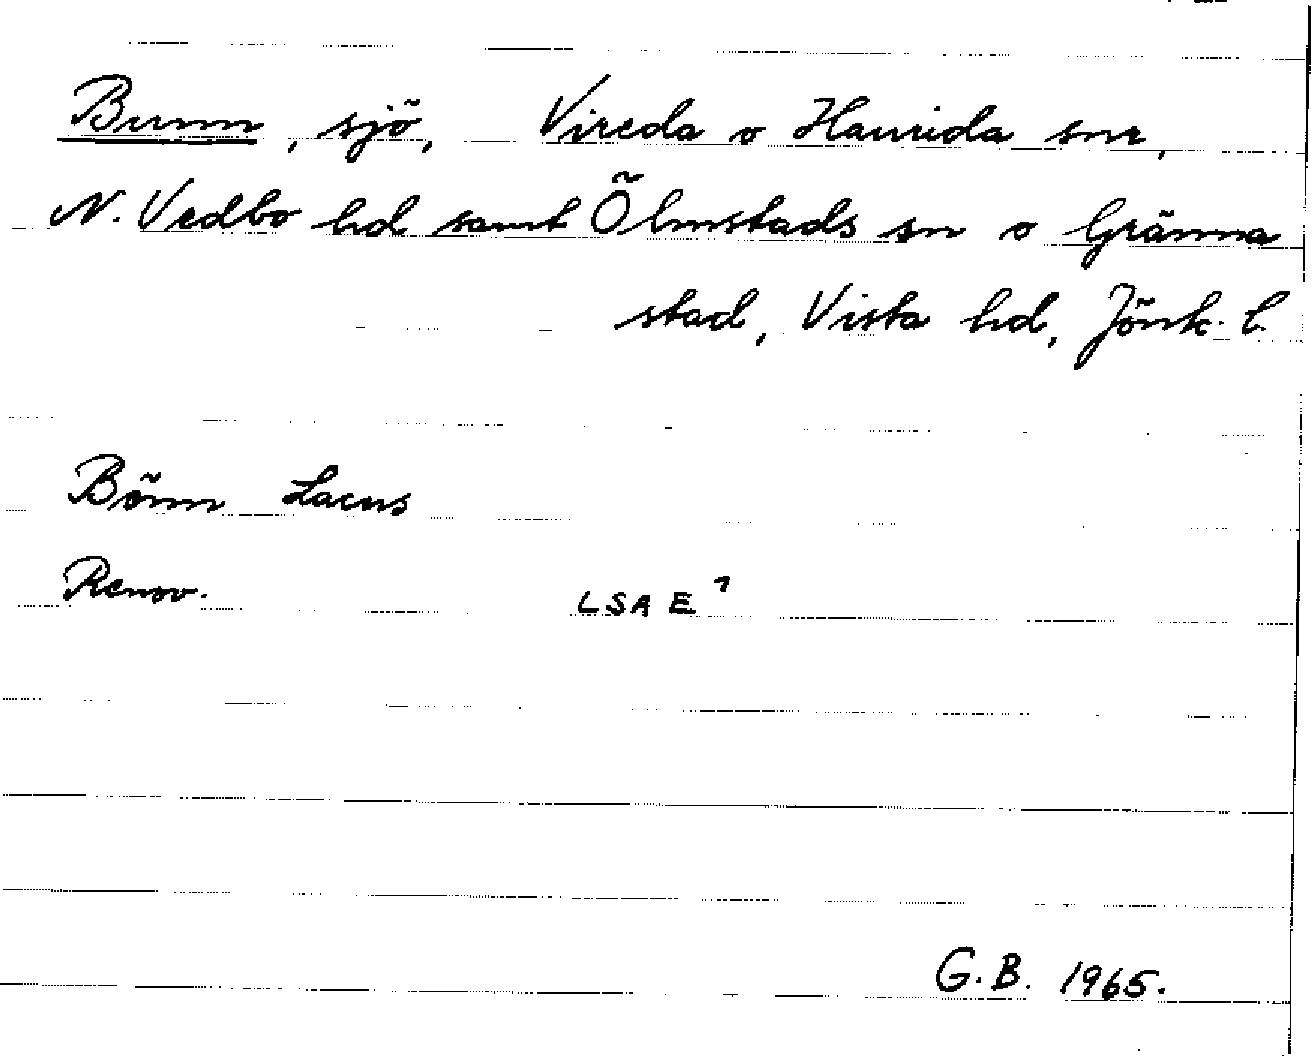 Bunn, sjö, Vireda o Haurida snr,
N. Vedbo hd samt Ölmstads sn o Gränna
stad, Vista hd, Jönk. l.
Bönn Lacus
Renov. LSA E 1
G.B. 1965.